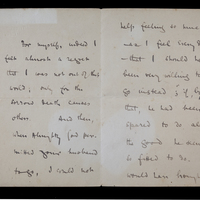 For myself, indeed I
felt almost a regret
that I was not out of this
world; only for the
sorrows death causes
others. And then,
when Almighty God per-
mitted your husband
to go, I could not
help feeling so much
mean I feel every
- that I should have
been very willing to
go instead if
that if he had been
spared to do all
the good he
is fitted to do.
would have brought